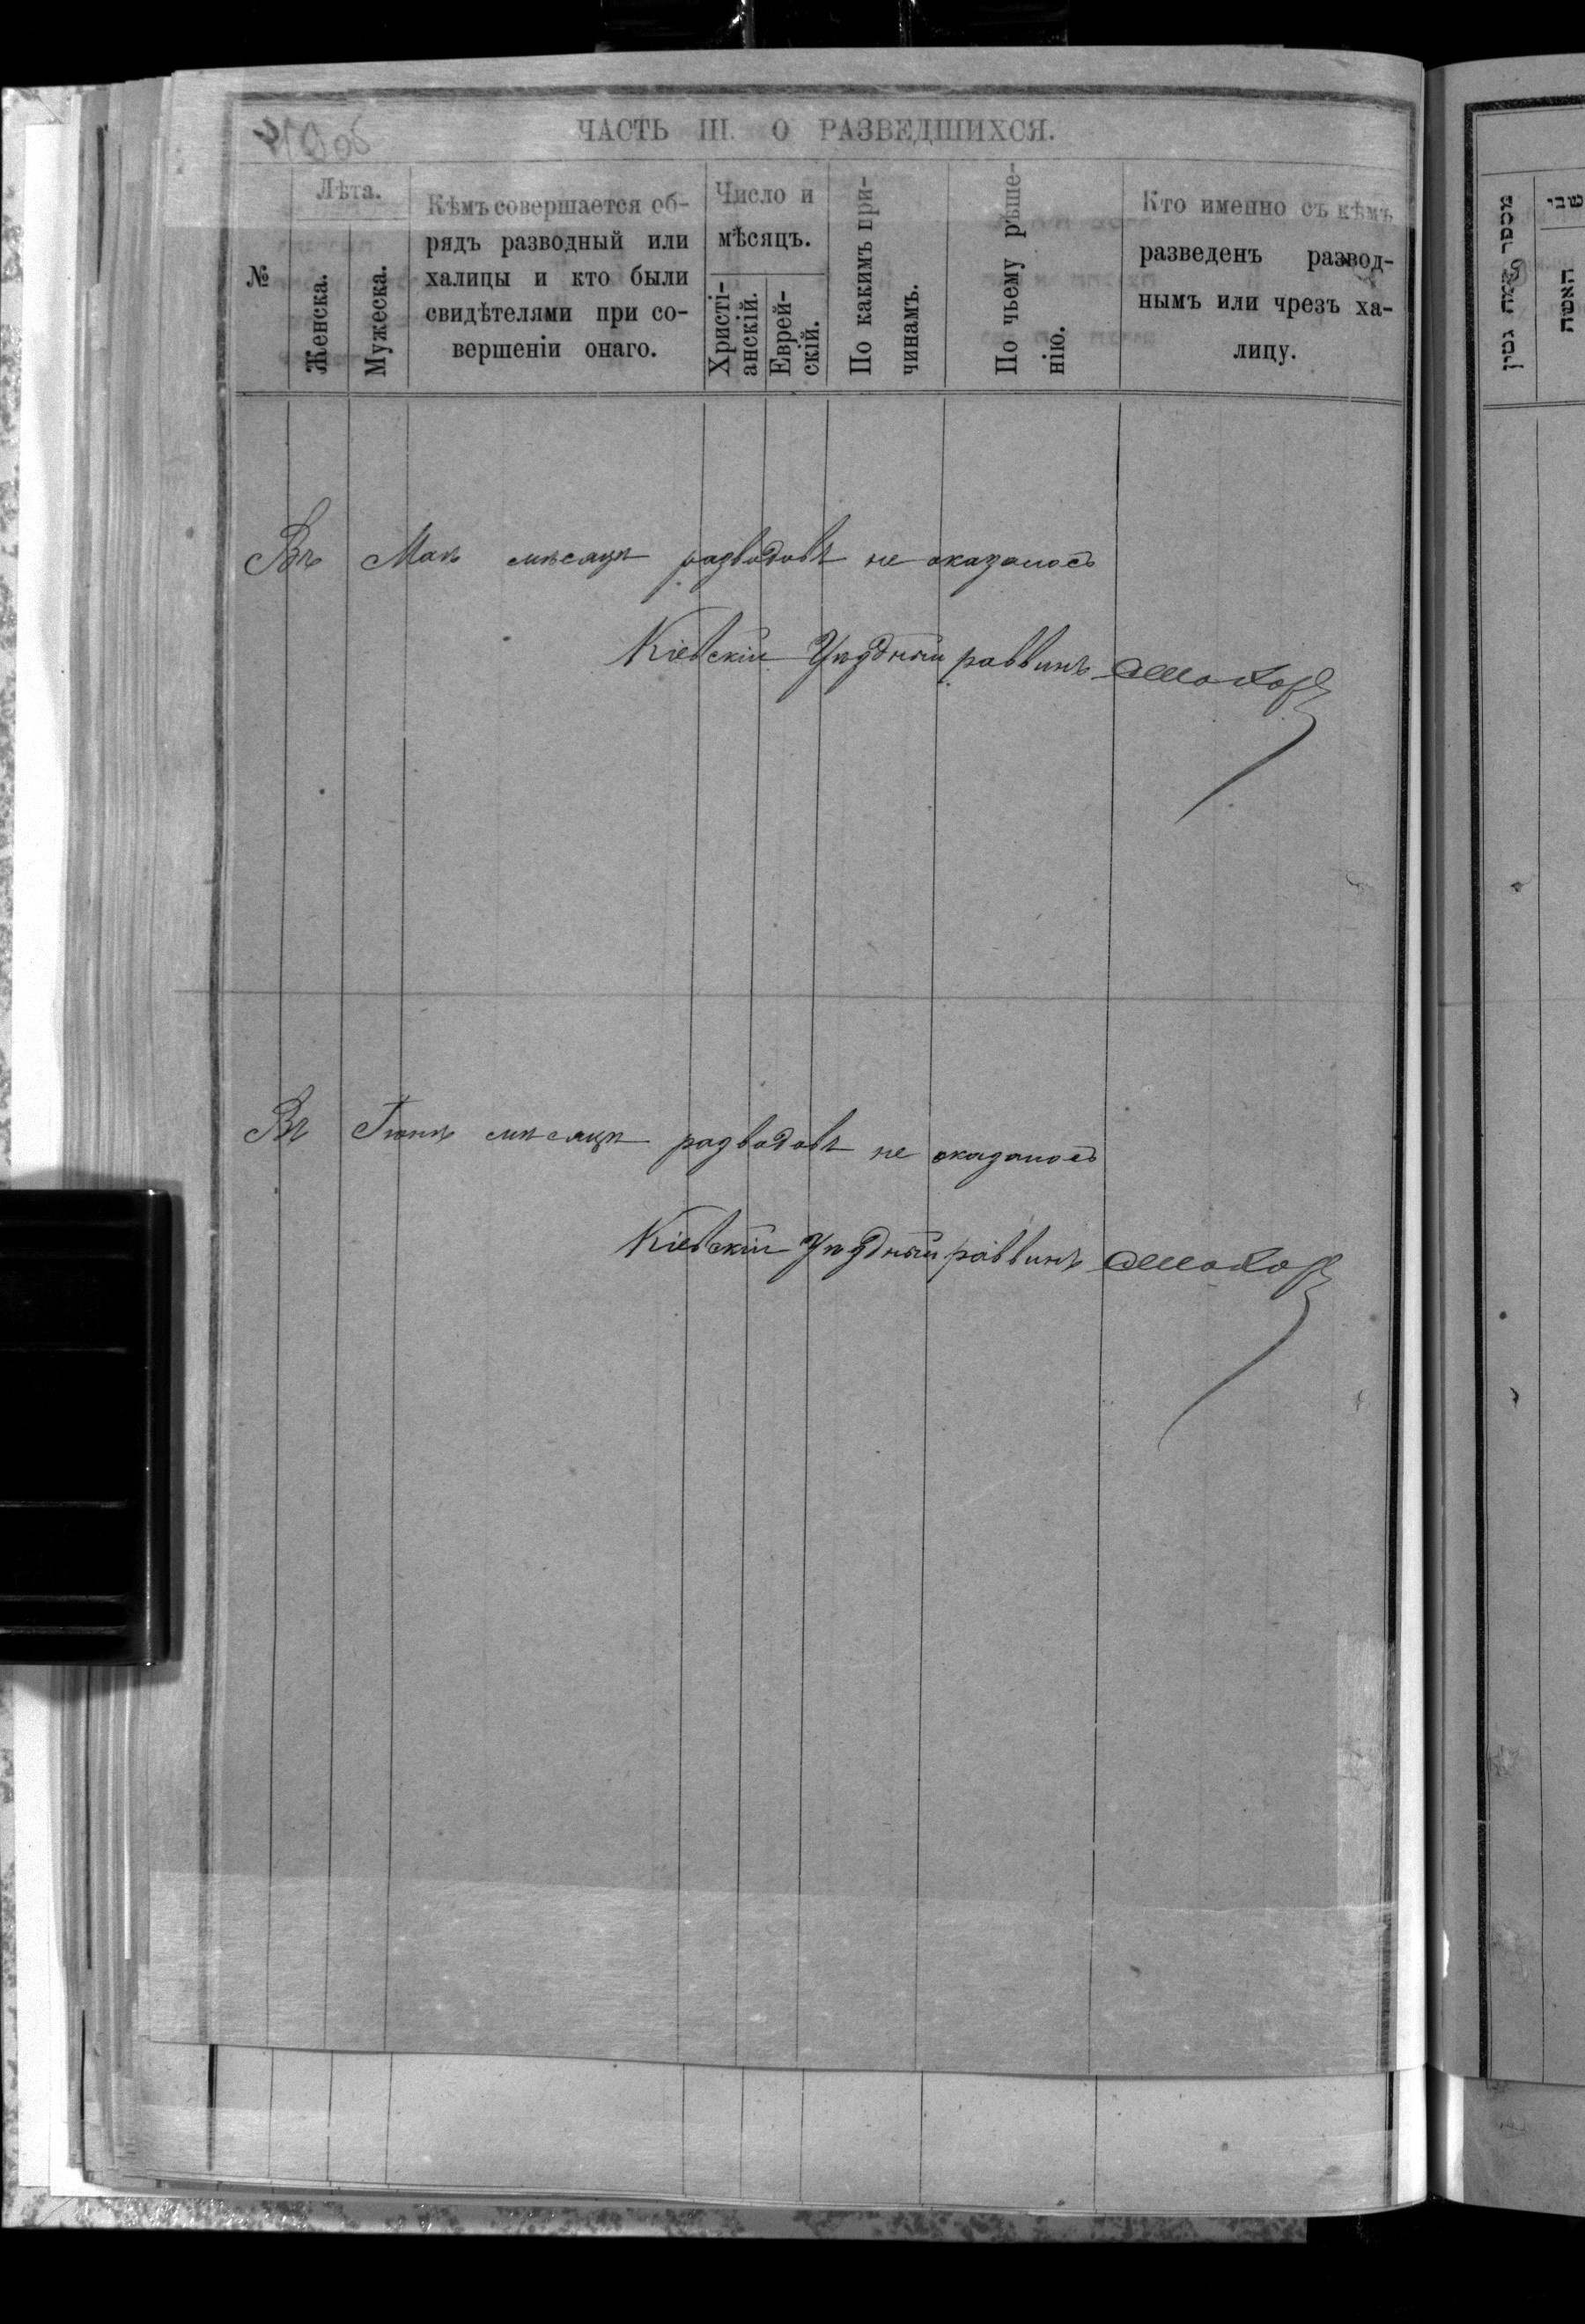 ЧАСТЬ III. О РАЗВЕДШИХСЯ.
№
Лѣта.
Женска.
Мужеска.
Кѣмъ совершается об-
рядъ разводный или
халицы и кто были
свидѣтелями при со-
вершеніи онаго.
Число и
мѣсяцъ.
Христі-
анскій.
Еврей-
скій.
По какимъ при-
чинамъ.
По чьему рѣше-
нію.
Кто именно съ кѣмъ
разведенъ развод-
нымъ или чрезъ ха-
лицу.
Въ Маѣ мѣсяцѣ разводовъ не оказалось
Кіевскій Уѣздный раввинъ
Въ Іюнѣ мѣсяцѣ разводовъ не оказалось
Кіевскій Уѣздный раввинъ
האשה